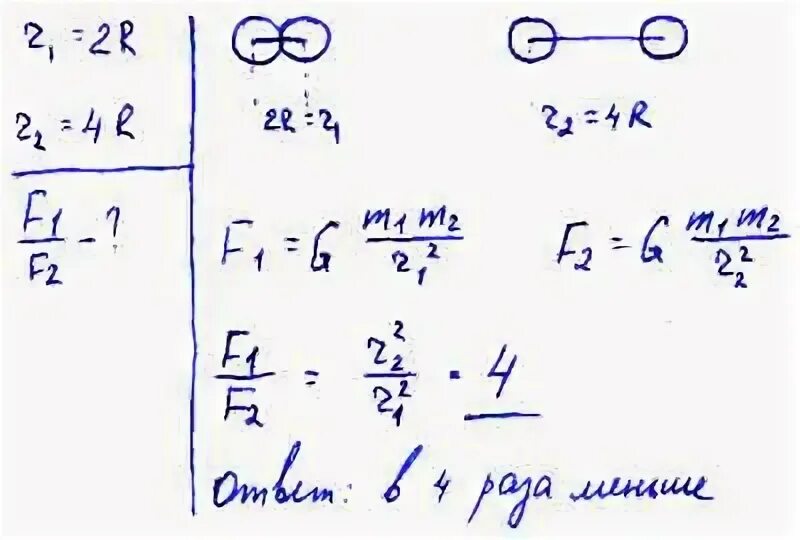 r₁ = 2R
r₂ = 4R
F₁/F₂ - ?
2R = r₁
r₂ = 4R
F₁ = G m₁ m₂ / r₁²
F₂ = G m₁ m₂ / r₂²
F₁/F₂ = r₂²/r₁² = 4
Ответ: в 4 раза меньше